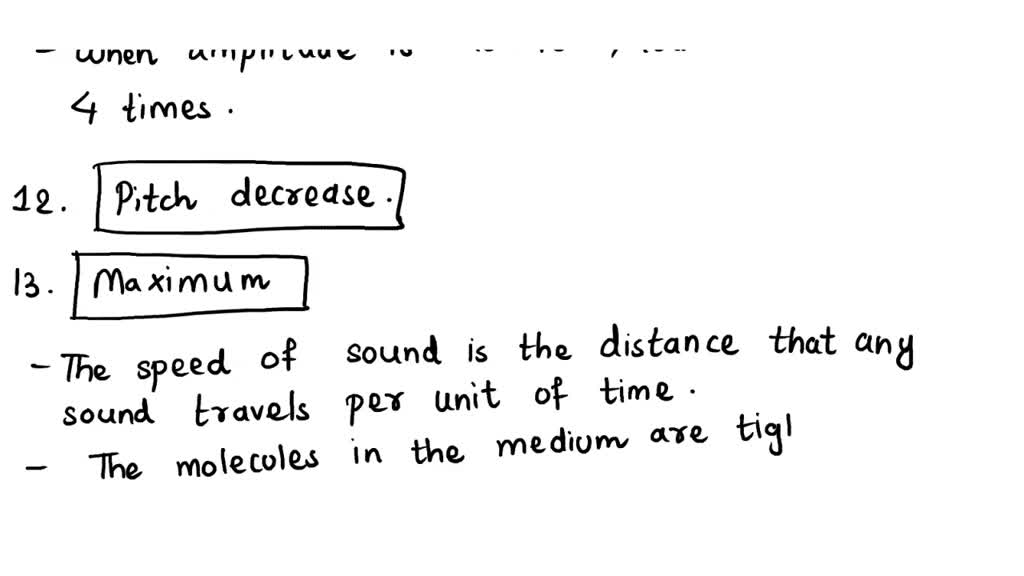 - when amplitude is
4 times.
12. Pitch decrease.
13. Maximum
- The speed of sound is the distance that any
sound travels per unit of time.
- The molecules in the medium are tigl